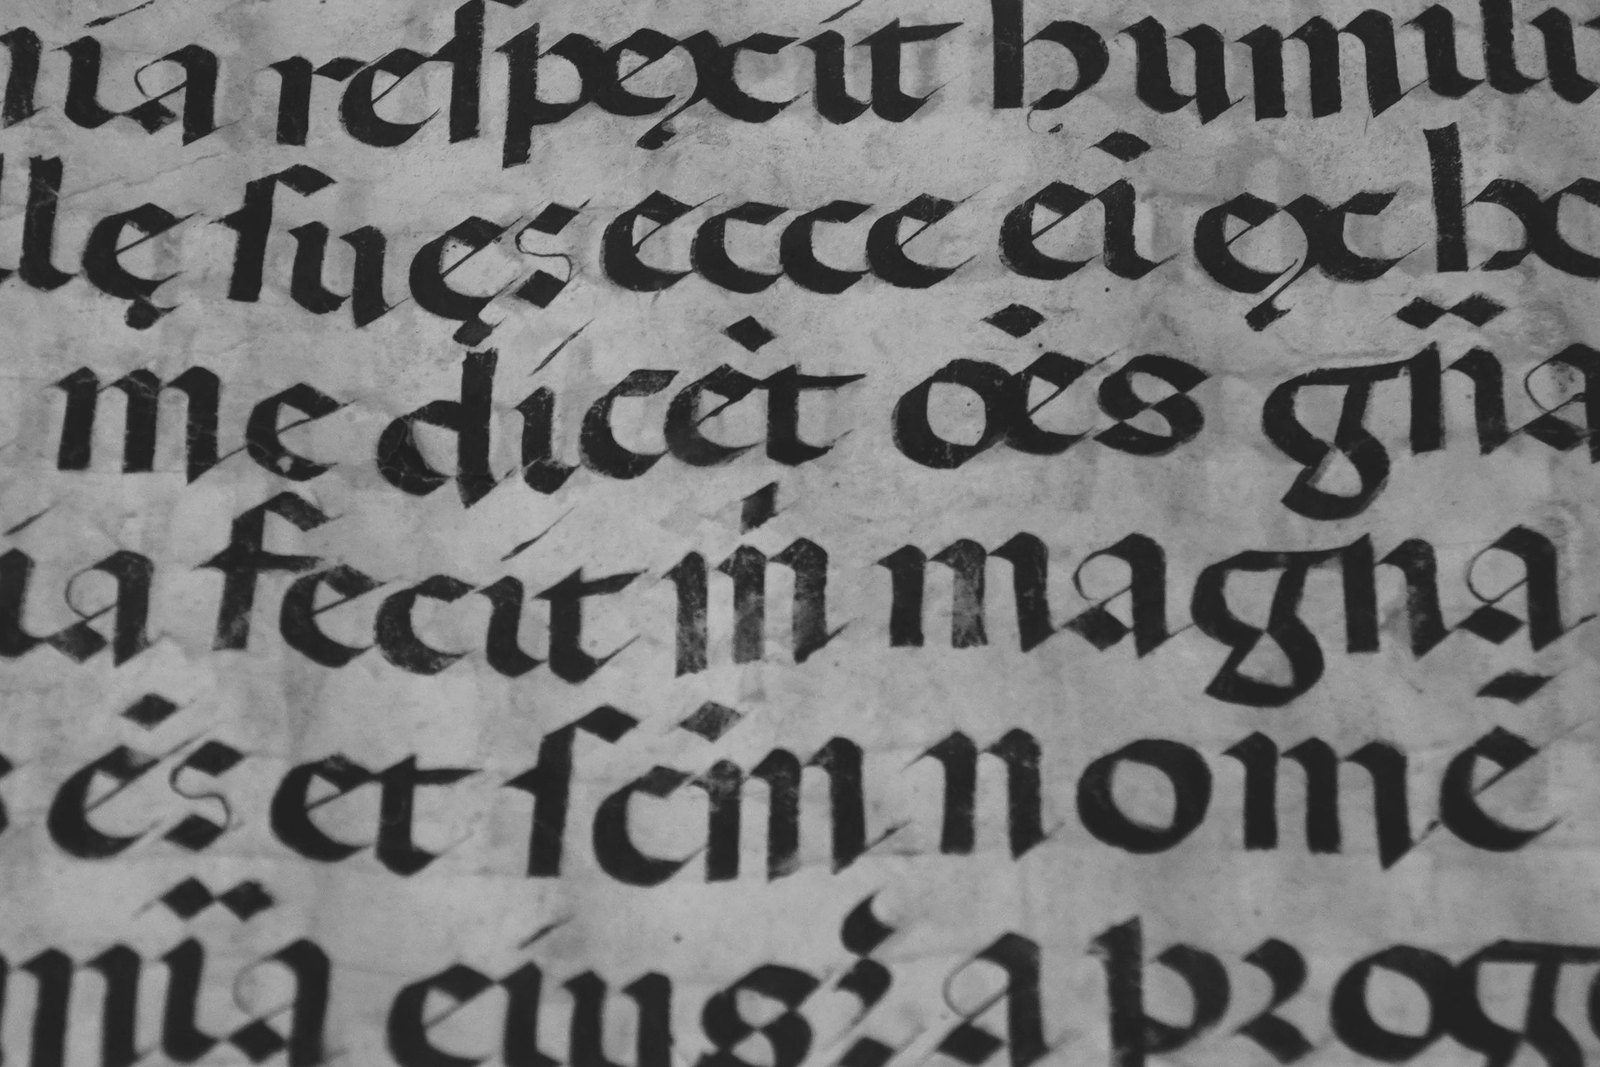 uia reſpexit humili
llę ſuę: ecce ei ex ho
me dicėt oės gn̈a
uia fecit mⁱ magna
ė: et ſcṁ nomē
mïa eius; a proge